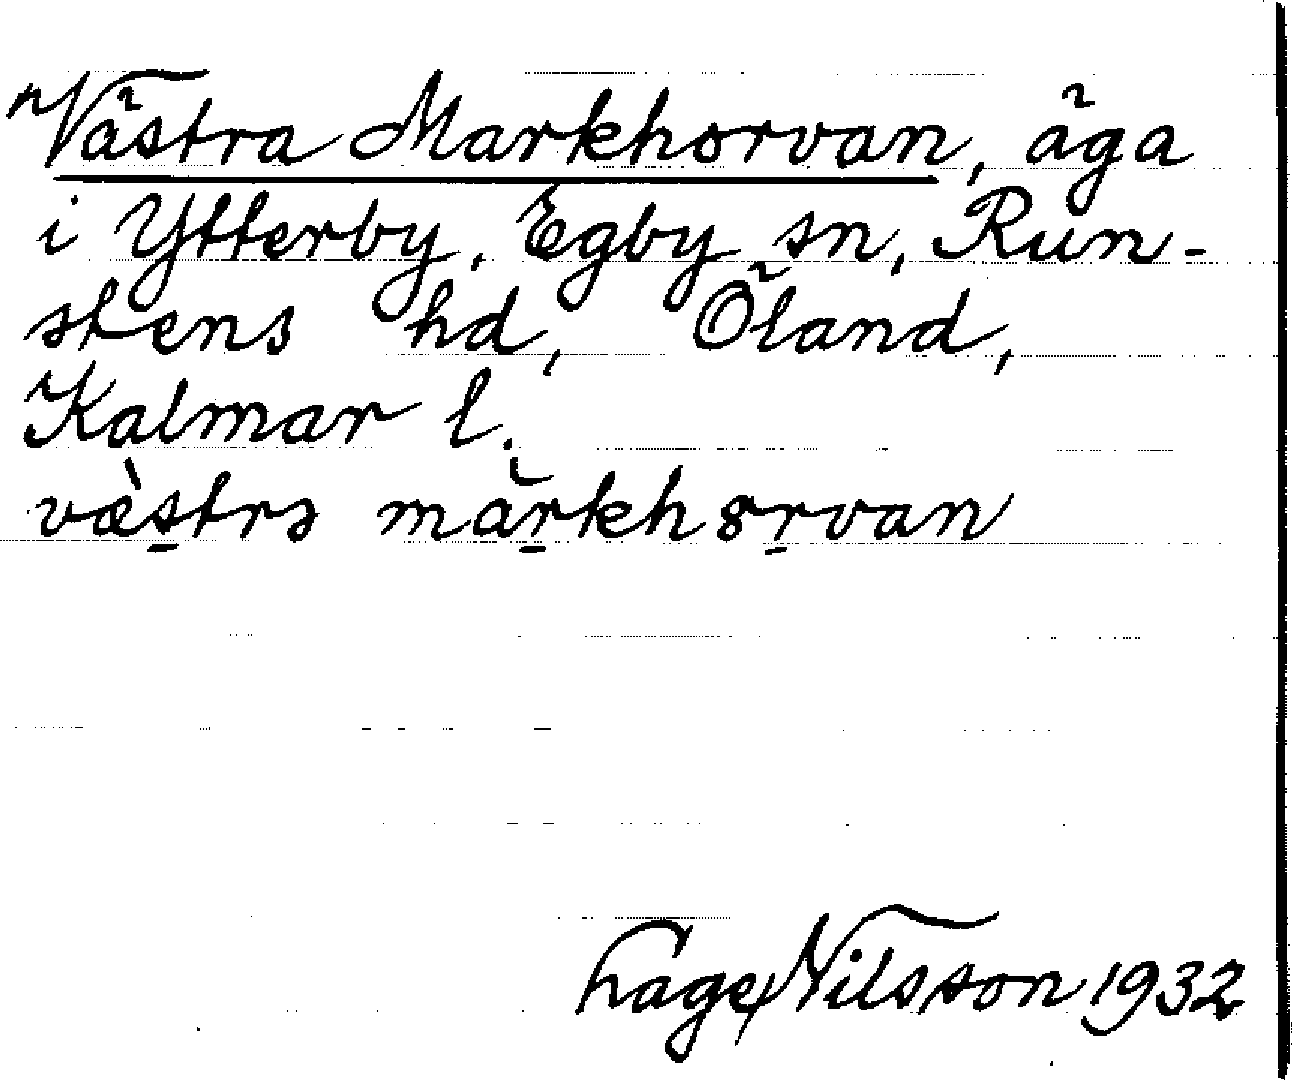 Västra Markhorvan, äga
i Ytterby, Egby sn, Run-
stens hd, Öland,
Kalmar l.
væ̀s̠trɘ mar̠kh8r̠van
Lage Nilsson 1932